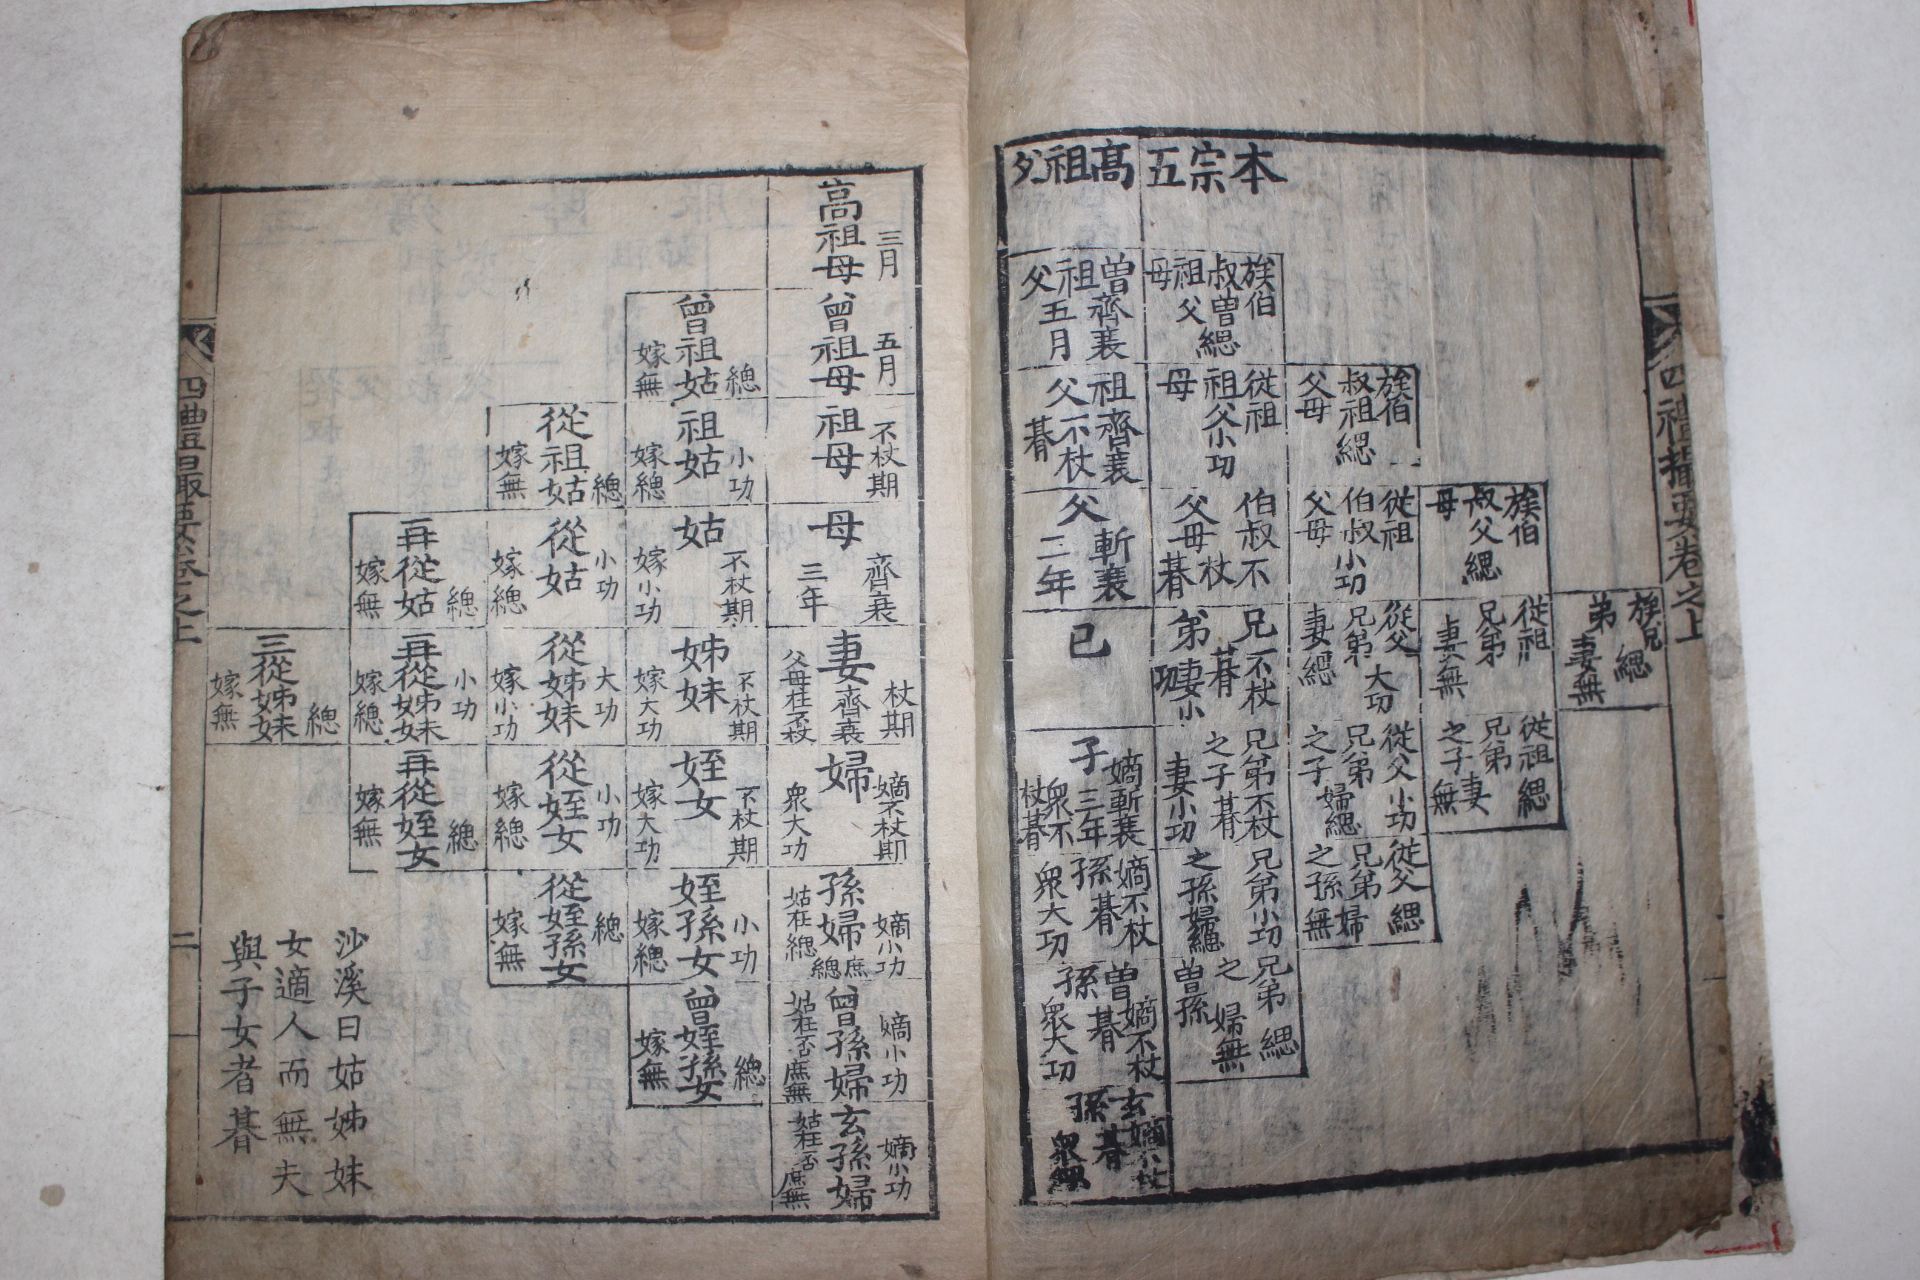 本宗五
高祖
族伯
叔曽
祖父
母
緦
曽齊衰
祖五月
父
族伯
叔祖緦
父母
從祖
祖父小功
母
祖齊衰
父不杖
朞
族伯
叔父緦
母
從祖
伯叔小功
父母
伯叔不
父母杖
朞
斬衰
父三年
族兄
弟緦
妻無
從祖
兄弟
妻無
從父大功
兄弟
妻緦
兄不杖
朞
弟妻小
功
已
從祖緦
兄弟
之子妻
無
從父小功
兄弟婦緦
之子
兄弟不杖
之子朞
妻小功
嫡斬衰
子三年
衆不
杖朞
從父緦
兄弟婦
之孫無
兄弟小功
之孫婦緦
嫡不杖
孫朞
衆大功
兄弟緦
之婦無
曽孫
曽嫡不杖
孫朞
衆大功
玄嫡不杖
孫朞
四禮撮要卷之上
三月
高祖母
五月
曾祖母
緦
曾祖姑
嫁無
不杖期
祖母
小功
祖姑
嫁緦
緦
從祖姑
嫁無
齊衰
母
三年
不杖期
姑
嫁小功
小功
從姑
嫁緦
緦
再從姑
嫁無
杖期
妻齊衰
父母在不杖
不杖期
姊妹
嫁大功
大功
從姊妹
嫁小功
小功
再從姊妹
嫁緦
緦
三從姊妹
嫁無
嫡不杖期
婦
衆大功
不杖期
姪女
嫁大功
小功
從姪女
嫁緦
緦
再從姪女
嫁無
嫡小功
孫婦庶緦
姑在緦
小功
姪孫女
嫁緦
緦
從姪孫女
嫁無
嫡小功
曾孫婦
姑在否庶無
緦
曾姪孫女
嫁無
嫡小功
玄孫婦
姑在否庶無
沙溪曰姑姊妹
女適人而無夫
與子女者朞
四禮撮要卷之上
二